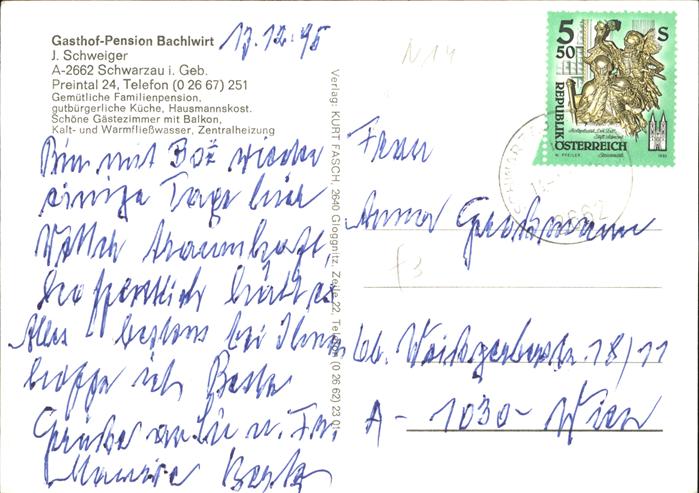 Gasthof-Pension Bachlwirt
J. Schweiger
A-2662 Schwarzau i. Geb.
Preintal 24, Telefon (0 26 67) 251
Gemütliche Familienpension,
gutbürgerliche Küche, Hausmannskost.
Schöne Gästezimmer mit Balkon,
Kalt- und Warmfließwasser, Zentralheizung
13.12.95
Bin mit wieder
einige Tage hier
traumhaft,
hoffentlich hält es
Alles bestens bei Ihnen
hoffe ich Beste
Grüße an Sie u. Fr.
Verlag: KURT FASCH, 2640 Gloggnitz, Zeile 22, Tel. (0 26 62) 23 0
N14
5 50 S
REPUBLIK ÖSTERREICH
2662
Frau
Anna Großmann
f3
Ob. Weißgerberstr. 18/11
A - 1030 - Wien